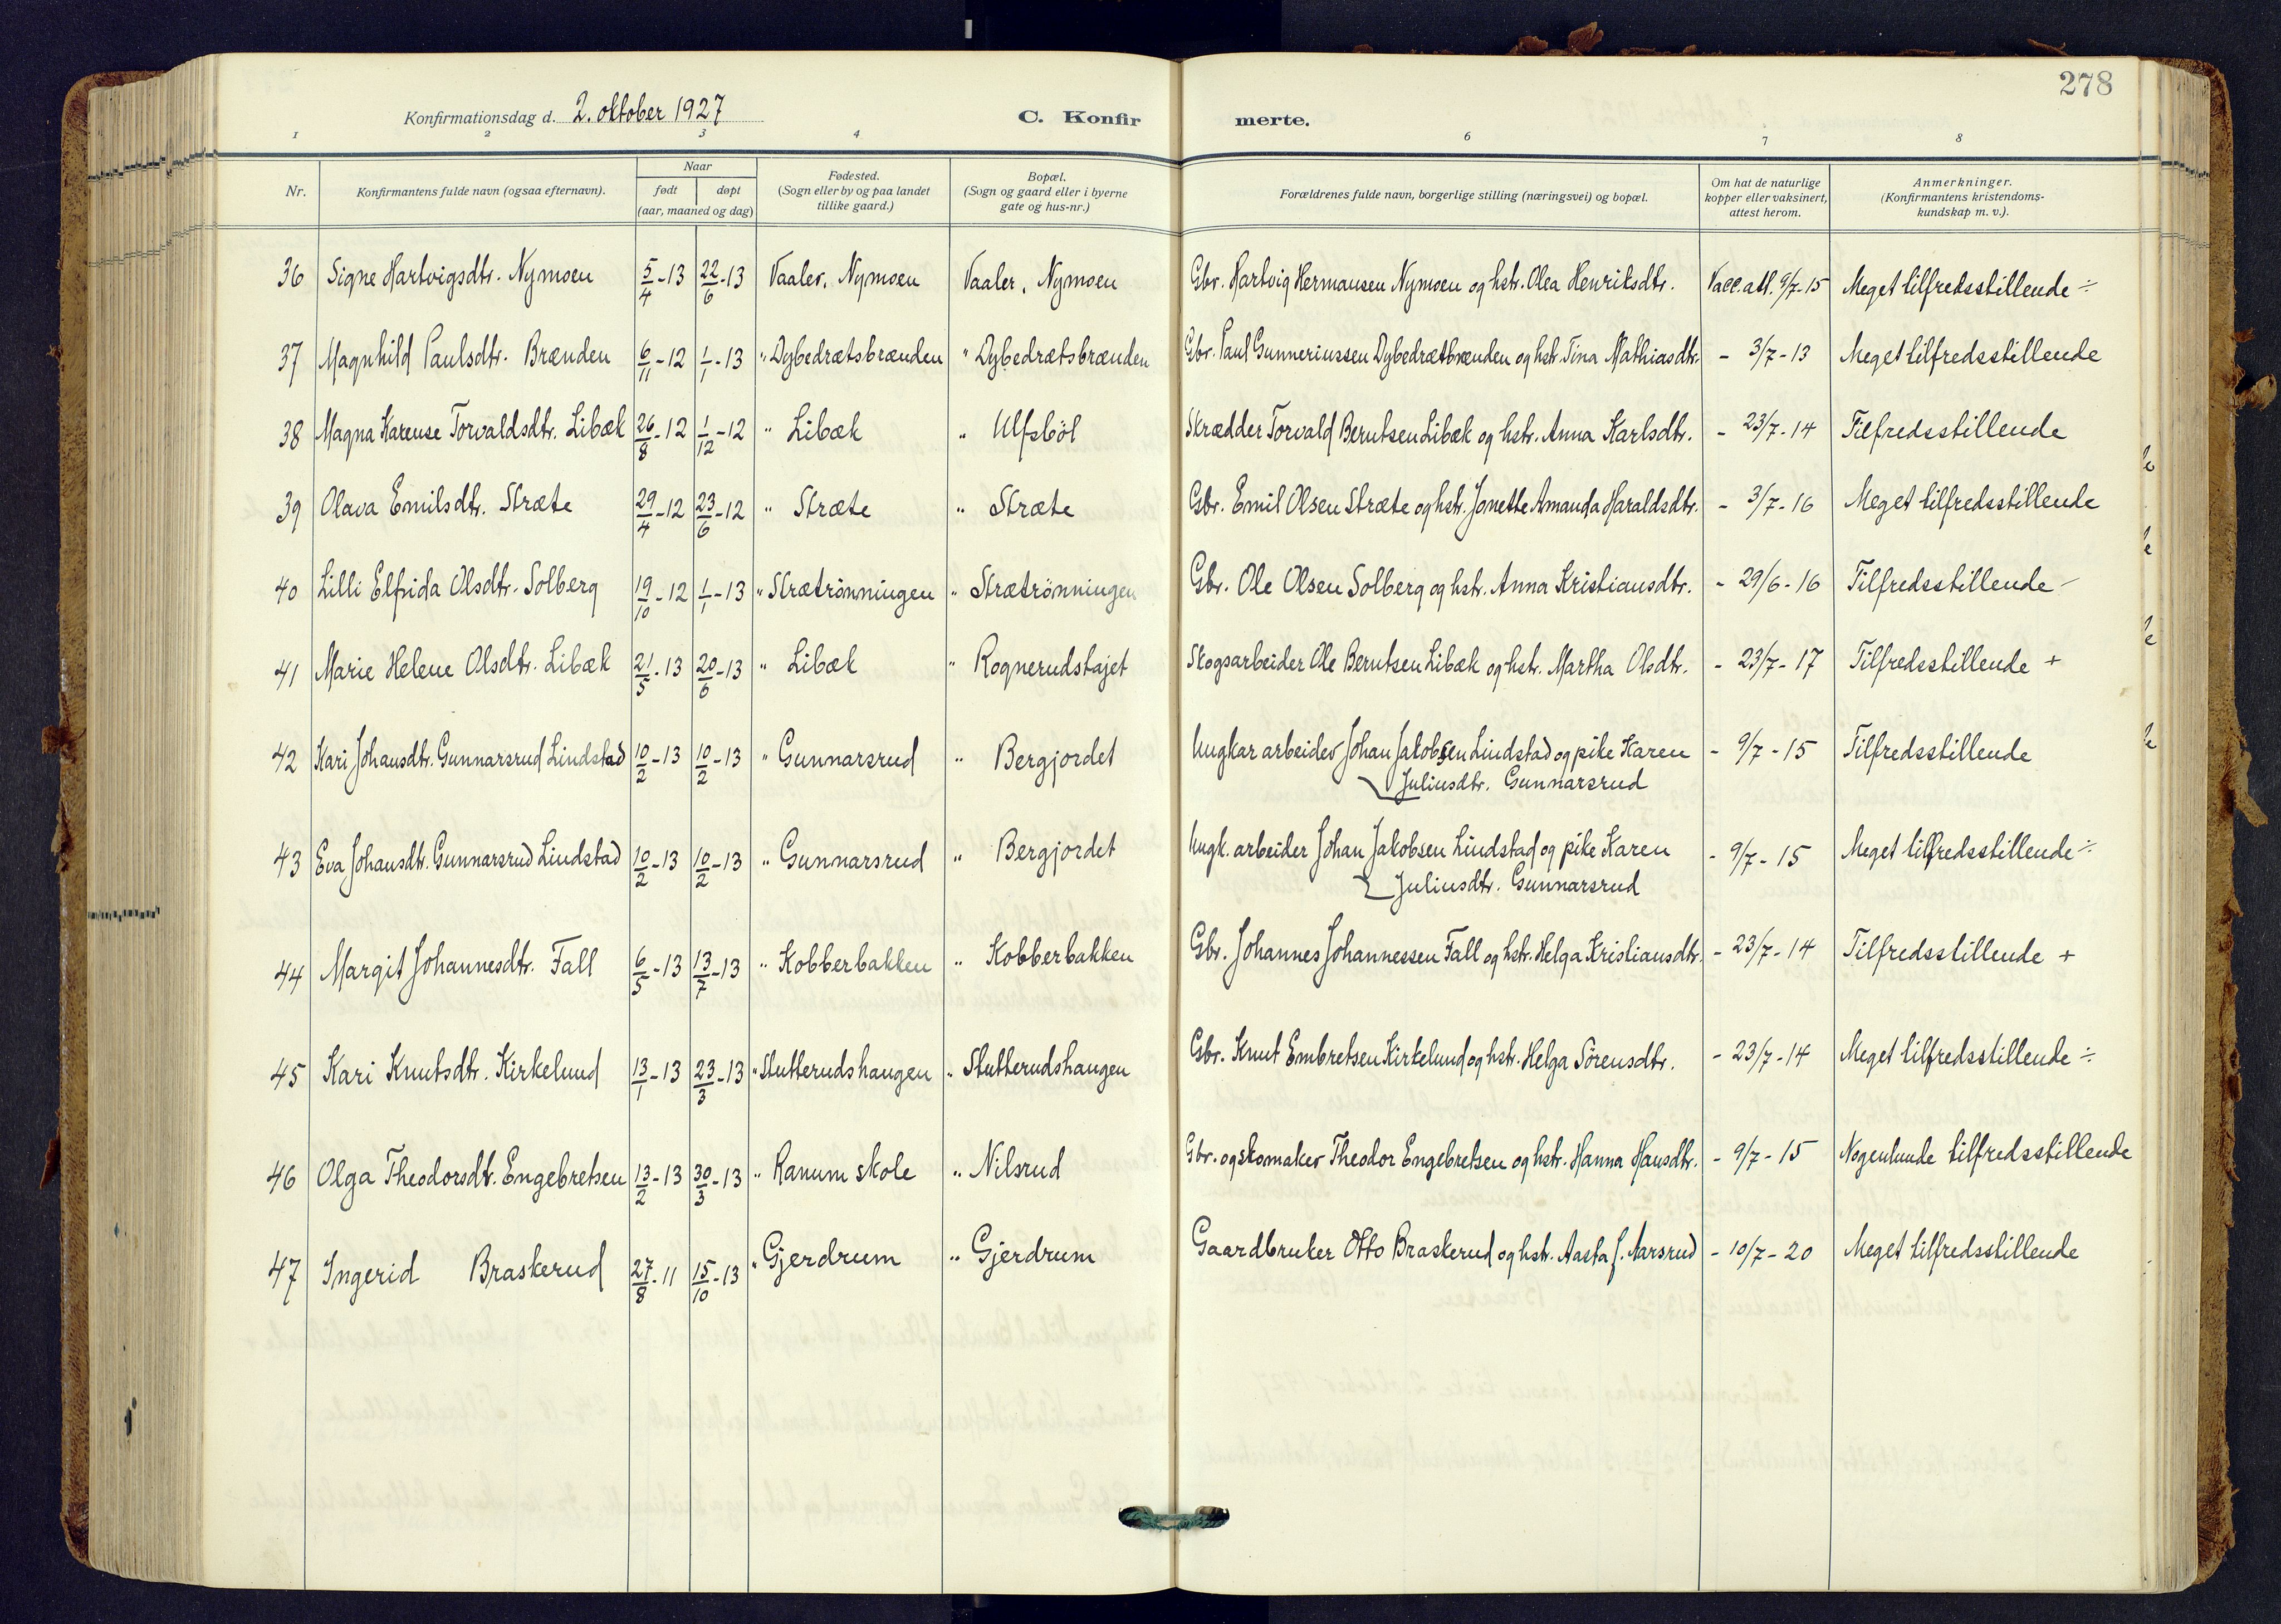 278
Konfirmationsdag d. 2. oktober 1927 C. Konfir merte.
1 2 3 4 6 7 8
Nr. Konfirmantens fulde navn (ogsaa efternavn). Naar født døpt (aar, maaned og dag) Fødested. (Sogn eller by og paa landet tillike gaard.) Bopæl. (Sogn og gaard eller i byerne gate og hus-nr.) Forældrenes fulde navn, borgerlige stilling (næringsvei) og bopæl. Om hat de naturlige kopper eller vaksinert, attest herom. Anmerkninger. (Konfirmantens kristendoms- kundskap m. v.).
36 Signe Hartvigsdtr. Nymoen 5/4-13 22/6-13 Vaaler, Nymoen Vaaler, Nymoen Gbr. Hartvig Hermansen Nymoen og hstr. Olea Henriksdtr. Vacc. att. 9/7-15 Meget tilfredsstillende ÷
37 Magnhild Paulsdtr. Brænden 6/11-12 1/1-13 " Dybedrætsbrænden " Dybedrætsbrænden Gbr. Paul Gunneriussen Dybedrætbrænden og hstr. Tina Mathiasdtr. - 3/7-13 Meget tilfredsstillende
38 Magna Karense Torvaldsdtr. Libæk 26/8-12 1/12-12 " Libæk " Ulfsböl Skrædder Torvald Berntsen Libæk og hstr. Anna Karlsdtr. - 23/7-14 Tilfredsstillende
39 Olava Emilsdtr. Stræte 29/4-12 23/6-12 " Stræte " Stræte Gbr. Emil Olsen Stræte og hstr. Jonette Amanda Haraldsdtr. - 3/7-16 Meget tilfredsstillende
40 Lilli Elfrida Olsdtr. Solberg 19/10-12 1/1-13 " Strætrönningen " Strætrönningen Gbr. Ole Olsen Solberg og hstr. Anna Kristiansdtr. - 29/6-16 Tilfredsstillende -
41 Marie Helene Olsdtr. Libæk 21/5-13 20/6-13 " Libæk " Rognerudstajet Skogsarbeider Ole Berntsen Libæk og hstr. Martha Olsdtr. - 23/7-17 Tilfredsstillende +
42 Kari Johansdtr. Gunnarsrud Lindstad 10/2-13 10/2-13 " Gunnarsrud " Bergjordet Ungkar arbeider Johan Jakobsen Lindstad og pike Karen - 9/7-15 Tilfredsstillende
Juliusdtr. Gunnarsrud
43 Eva Johansdtr. Gunnarsrud Lindstad 10/2-13 10/2-13 " Gunnarsrud " Bergjordet Ungk. arbeider Johan Jakobsen Lindstad og pike Karen - 9/7-15 Meget tilfredsstillende ÷
Juliusdtr. Gunnarsrud
44 Margit Johannesdtr. Fall 6/5-13 13/7-13 " Kobberbakken " Kobberbakken Gbr. Johannes Johannessen Fall og hstr. Helga Kristiansdtr. - 23/7-14 Tilfredsstillende +
45 Kari Knutsdtr. Kirkelund 13/1-13 23/3-13 " Stutterudshaugen " Stutterudshaugen Gbr. Knut Embretsen Kirkelund og hstr. Helga Sörensdtr. - 23/7-14 Meget tilfredsstillende ÷
46 Olga Theodorsdt. Engebretsen 13/2-13 30/3-13 " Ranum skole " Nilsrud Gbr. og skomaker Theodor Engebretsen og hstr. Hanna Hansdtr. - 9/7-15 Nogenlunde tilfredsstillende
47 Ingerid Braskerud 27/8-11 15/10-13 " Gjerdrum " Gjerdrum Gaardbruker Otto Braskerud og hstr. Aasta f. Aarsrud - 10/7-20 Meget tilfredsstillende